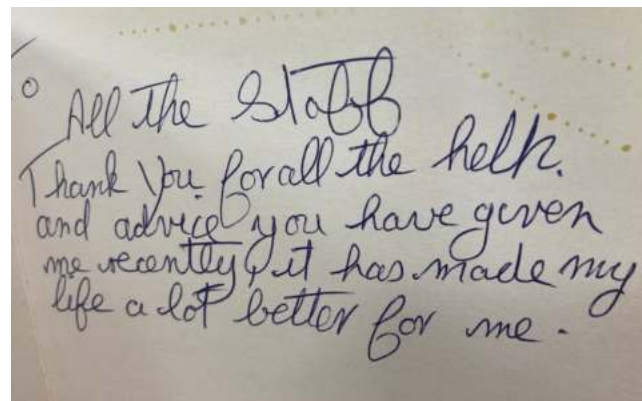 To
All the Staff
Thank You for all the help.
and advice you have given
me recently, it has made my
life a lot better for me.